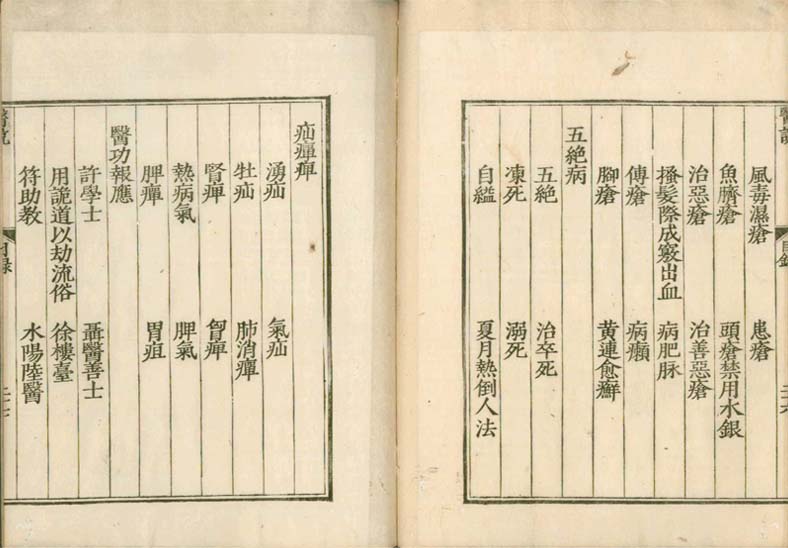 醫說 目錄 二十六
風毒濕瘡 患瘡
魚臍瘡 頭瘡禁用水銀
治惡瘡 治善惡瘡
搔髮際成竅出血 病肥脉
傅瘡 病癩
腳瘡 黃連愈癬
五絶病
五絶 治卒死
凍死 溺死
自縊 夏月熱倒人法
疝癉痺
湧疝 氣疝
牡疝 肺消癉
腎痺 胷痺
熱病氣 脾氣
脾癉 胃疽
醫功報應
許學士 聶醫善士
用詭道以劫流俗 徐樓臺
符助教 水陽陸醫
醫說 目録 二十七